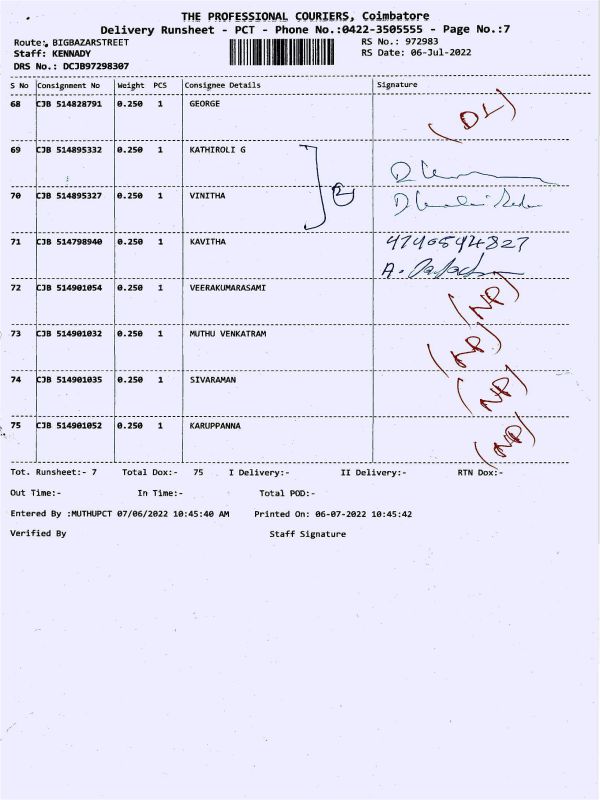 THE PROFESSIONAL COURIERS, Coimbatore
Delivery Runsheet - PCT - Phone No.:0422-3505555 - Page No.:7
Route: BIGBAZARSTREET
RS No.: 972983
Staff: KENNADY
RS Date: 06-Jul-2022
DRS No.: DCJB97298307
S No Consignment No Weight PCS Consignee Details Signature
68 CJB 514828791 0.250 1 GEORGE (DL)
69 CJB 514895332 0.250 1 KATHIROLI G
70 CJB 514895327 0.250 1 VINITHA
71 CJB 514798940 0.250 1 KAVITHA
72 CJB 514901054 0.250 1 VEERAKUMARASAMI (NP)
73 CJB 514901032 0.250 1 MUTHU VENKATRAM (NP)
74 CJB 514901035 0.250 1 SIVARAMAN (NP)
75 CJB 514901052 0.250 1 KARUPPANNA (NP)
Tot. Runsheet:- 7 Total Dox:- 75 I Delivery:- II Delivery:- RTN Dox:-
Out Time:- In Time:- Total POD:-
Entered By :MUTHUPCT 07/06/2022 10:45:40 AM Printed On: 06-07-2022 10:45:42
Verified By Staff Signature